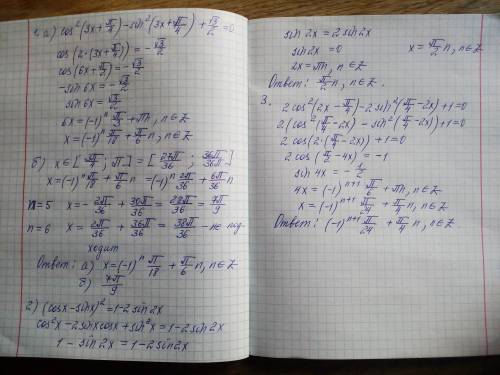 1. а) cos²(3x+π/4)-sin²(3x+π/4)+√3/2=0
cos(2·(3x+π/4))=-√3/2
cos(6x+π/2)=-√3/2
-sin6x=-√3/2
sin6x=√3/2
6x=(-1)ⁿπ/3+πn, n∈Z
x=(-1)ⁿπ/18+π/6n, n∈Z
б) x∈[3π/4; π]=[27π/36; 36π/36]
x=(-1)ⁿπ/18+π/6n=(-1)ⁿ2π/36+6π/36n
n=5 x=-2π/36+30π/36=28π/36=7π/9
n=6 x=2π/36+36π/36=38π/36-не под
ходит
Ответ: а) x=(-1)ⁿπ/18+π/6n, n∈Z
б) 7π/9
2) (cosx-sinx)²=1-2sin2x
cos²x-2sinxcosx+sin²x=1-2sin2x
1-sin2x=1-2sin2x
sin2x=2sin2x
sin2x=0 x=π/2n, n∈Z
2x=πn, n∈Z
Ответ: π/2n, n∈Z.
3. 2cos²(2x-π/4)-2sin²(π/4-2x)+1=0
2(cos²(π/4-2x)-sin²(π/4-2x))+1=0
2cos(2·(π/4-2x))+1=0
2cos(π/2-4x)=-1
sin4x=-1/2
4x=(-1)ⁿ⁺¹π/6+πn, n∈Z
x=(-1)ⁿ⁺¹π/24+π/4n, n∈Z
Ответ: (-1)ⁿ⁺¹π/24+π/4n, n∈Z